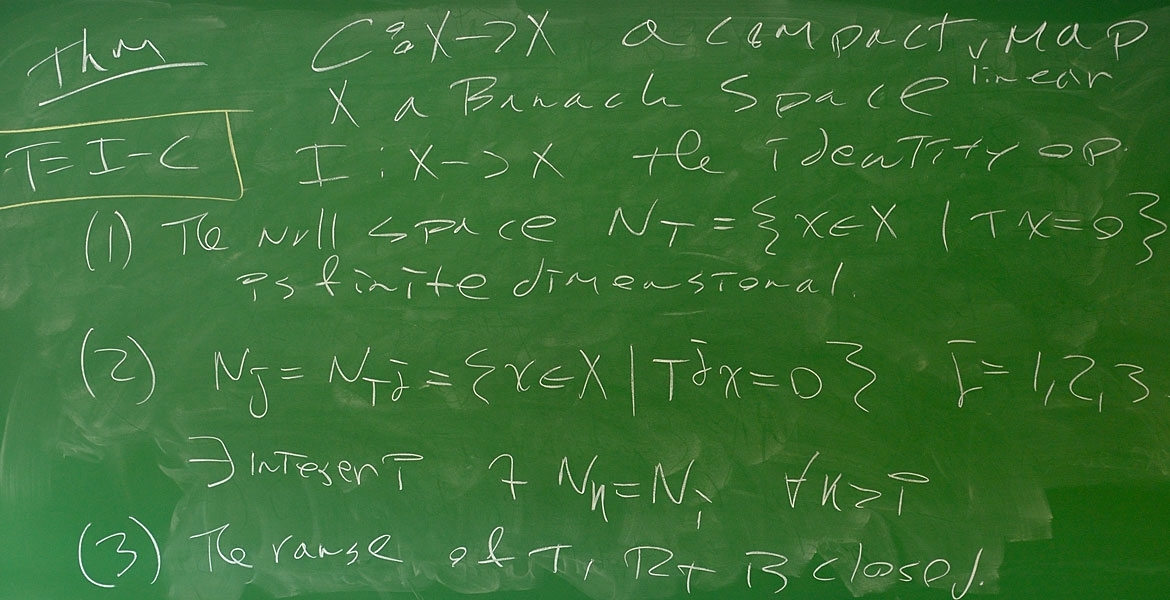 Thm C: X -> X a compact linear map
X a Banach Space
T = I - C I : X -> X the identity op.
(1) The null space N_T = {x ∈ X | Tx = 0}
is finite dimensional.
(2) N_j = N_{T^j} = {x ∈ X | T^j x = 0} j = 1, 2, 3
∃ integer i ∋ N_k = N_i ∀ k ≥ i
(3) The range of T, R_T is closed.